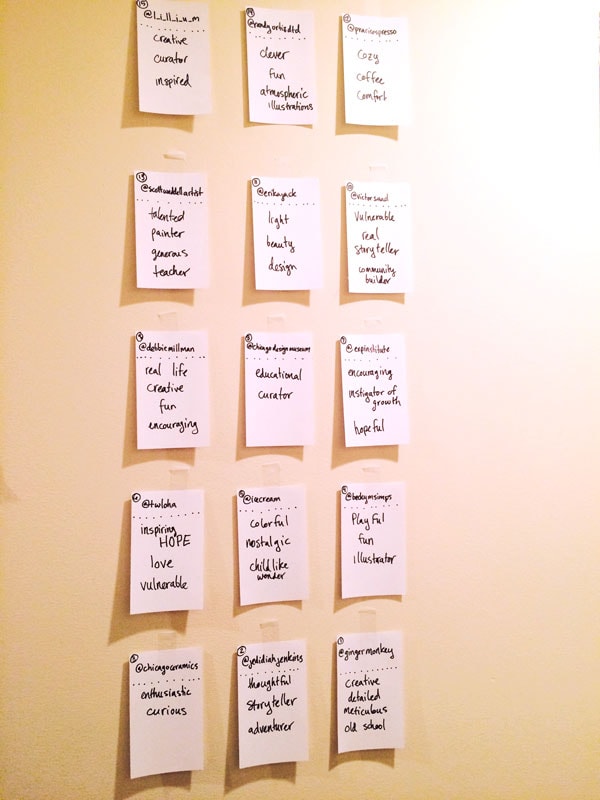 15
@l_i_ll_i_u_m
creative
curator
inspired
14
clever
fun
atmospheric
illustrations
cozy
coffee
comfort
@scottwaddellartist
talented
painter
generous
teacher
@erikayack
light
beauty
design
10
@victorsaad
vulnerable
real
storyteller
community
builder
@debbiemillman
real life
creative
fun
encouraging
@chicagodesignmuseum
educational
curator
7
@expinstitute
encouraging
instigator of
growth
hopeful
6
@twloha
inspiring
HOPE
love
vulnerable
5
@icecream
colorful
nostalgic
childlike
wonder
4
@beckymsimps
Playful
fun
illustrator
3
@chicagoceramics
enthusiastic
curious
2
@jedidiahjenkins
thoughtful
storyteller
adventurer
1
@gingermonkey
creative
detailed
meticulous
old school